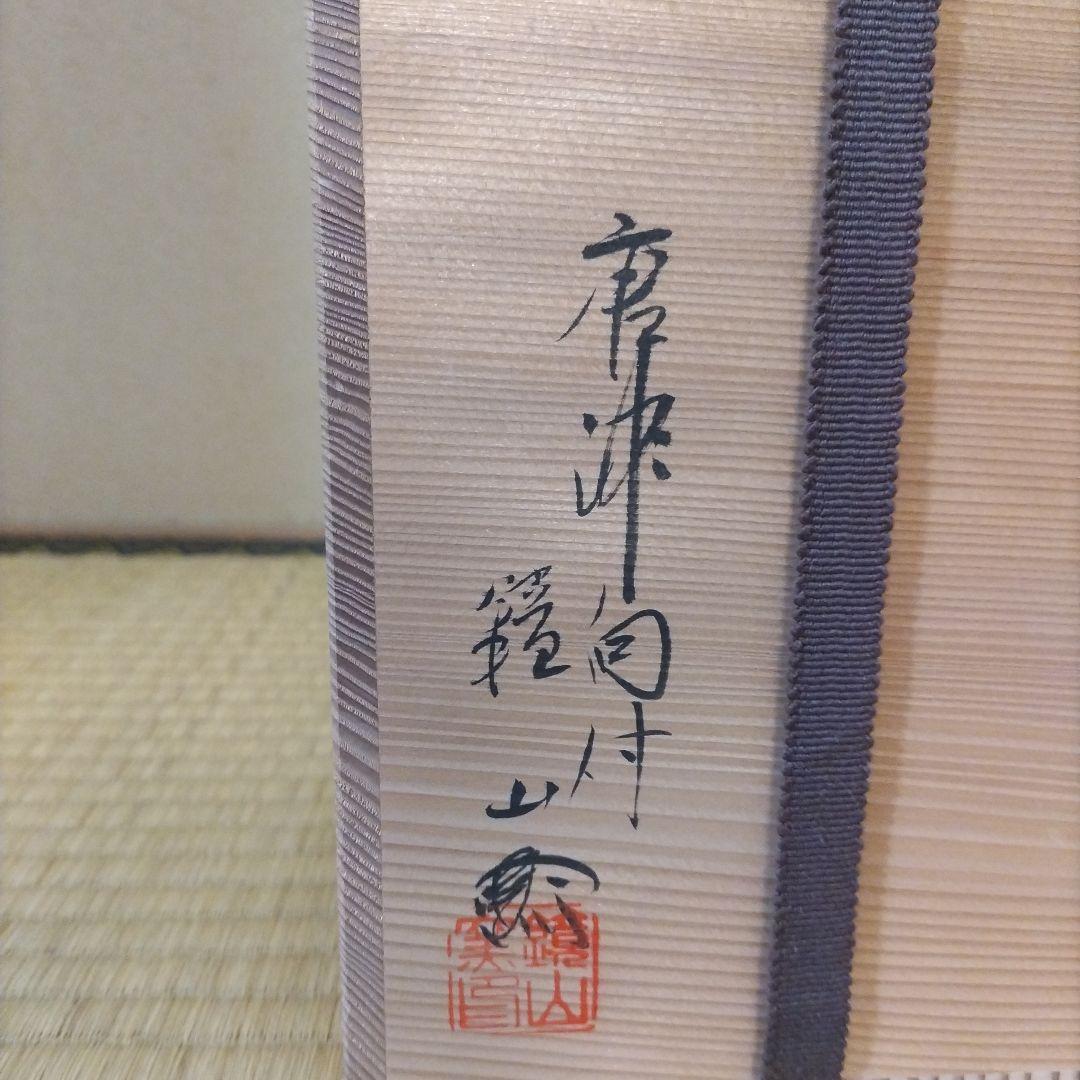 唐津向付
鏡山窯
鏡山窯印